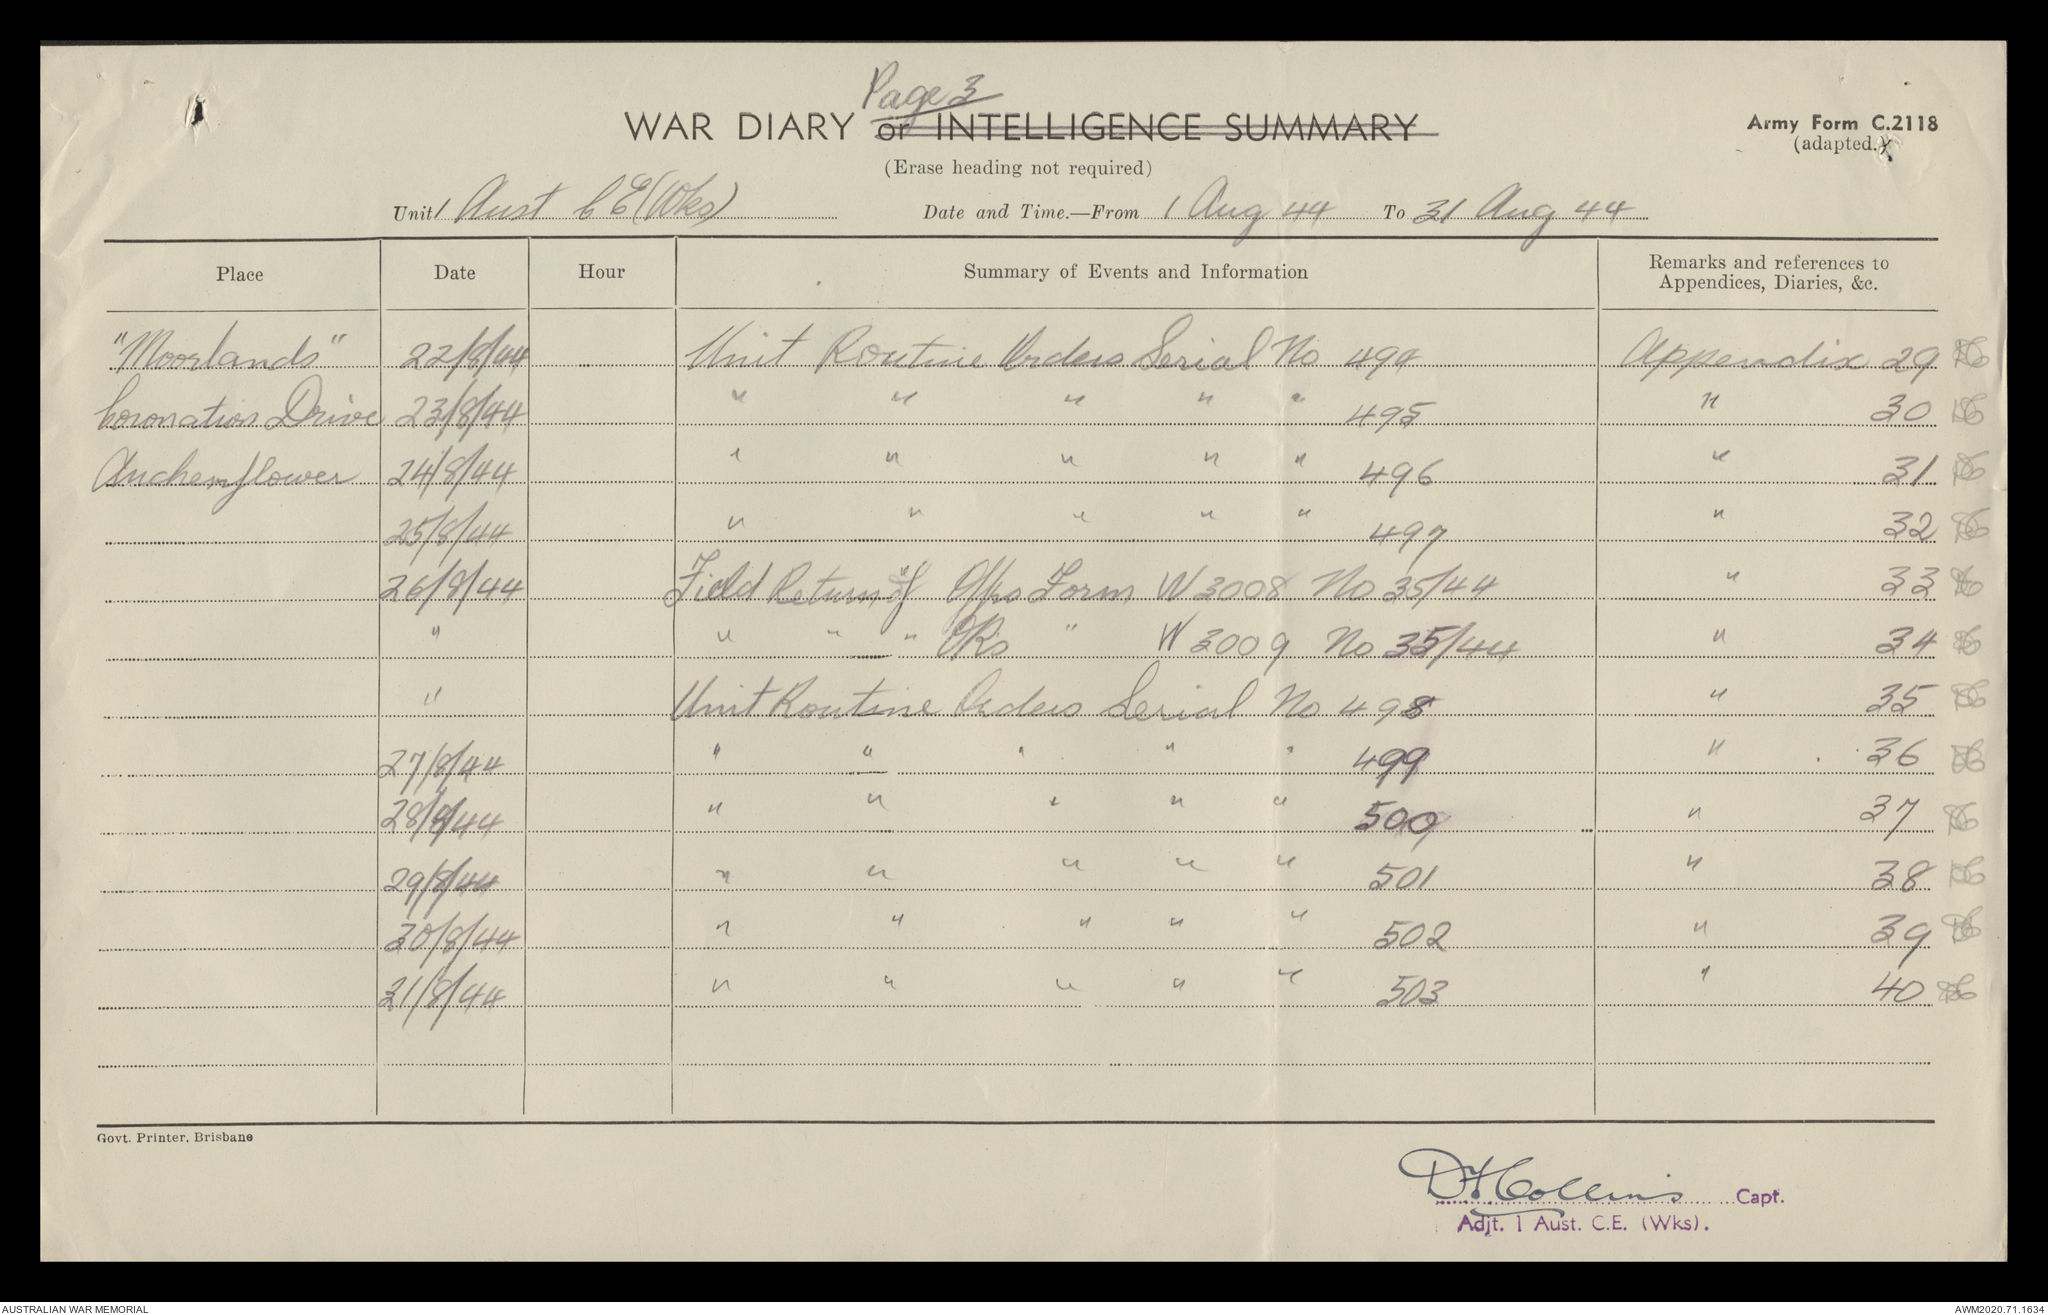 Page 3
WAR DIARY or INTELLIGENCE SUMMARY
Army Form C.2118
(adapted.)
(Erase heading not required)
Unit 1 Aust C E (Wks) Date and Time.—From 1 Aug 44 To 31 Aug 44
Place Date Hour Summary of Events and Information Remarks and references to Appendices, Diaries, &c.
"Moorlands" 22/8/44 Unit Routine Orders Serial No 494 Appendix 29
Coronation Drive 23/8/44 " " " " " 495 " 30
Auchenflower 24/8/44 " " " " " 496 " 31
25/8/44 " " " " " 497 " 32
26/8/44 Field Return of Offrs Form W 3008 No 35/44 " 33
" " " " ORs " W 3009 No 35/44 " 34
" Unit Routine Orders Serial No 498 " 35
27/8/44 " " " " " 499 " 36
28/8/44 " " " " " 500 " 37
29/8/44 " " " " " 501 " 38
30/8/44 " " " " " 502 " 39
31/8/44 " " " " " 503 " 40
Govt. Printer, Brisbane
Collins Capt.
Adjt. 1 Aust. C.E. (Wks).
AUSTRALIAN WAR MEMORIAL
AWM2020.71.1634